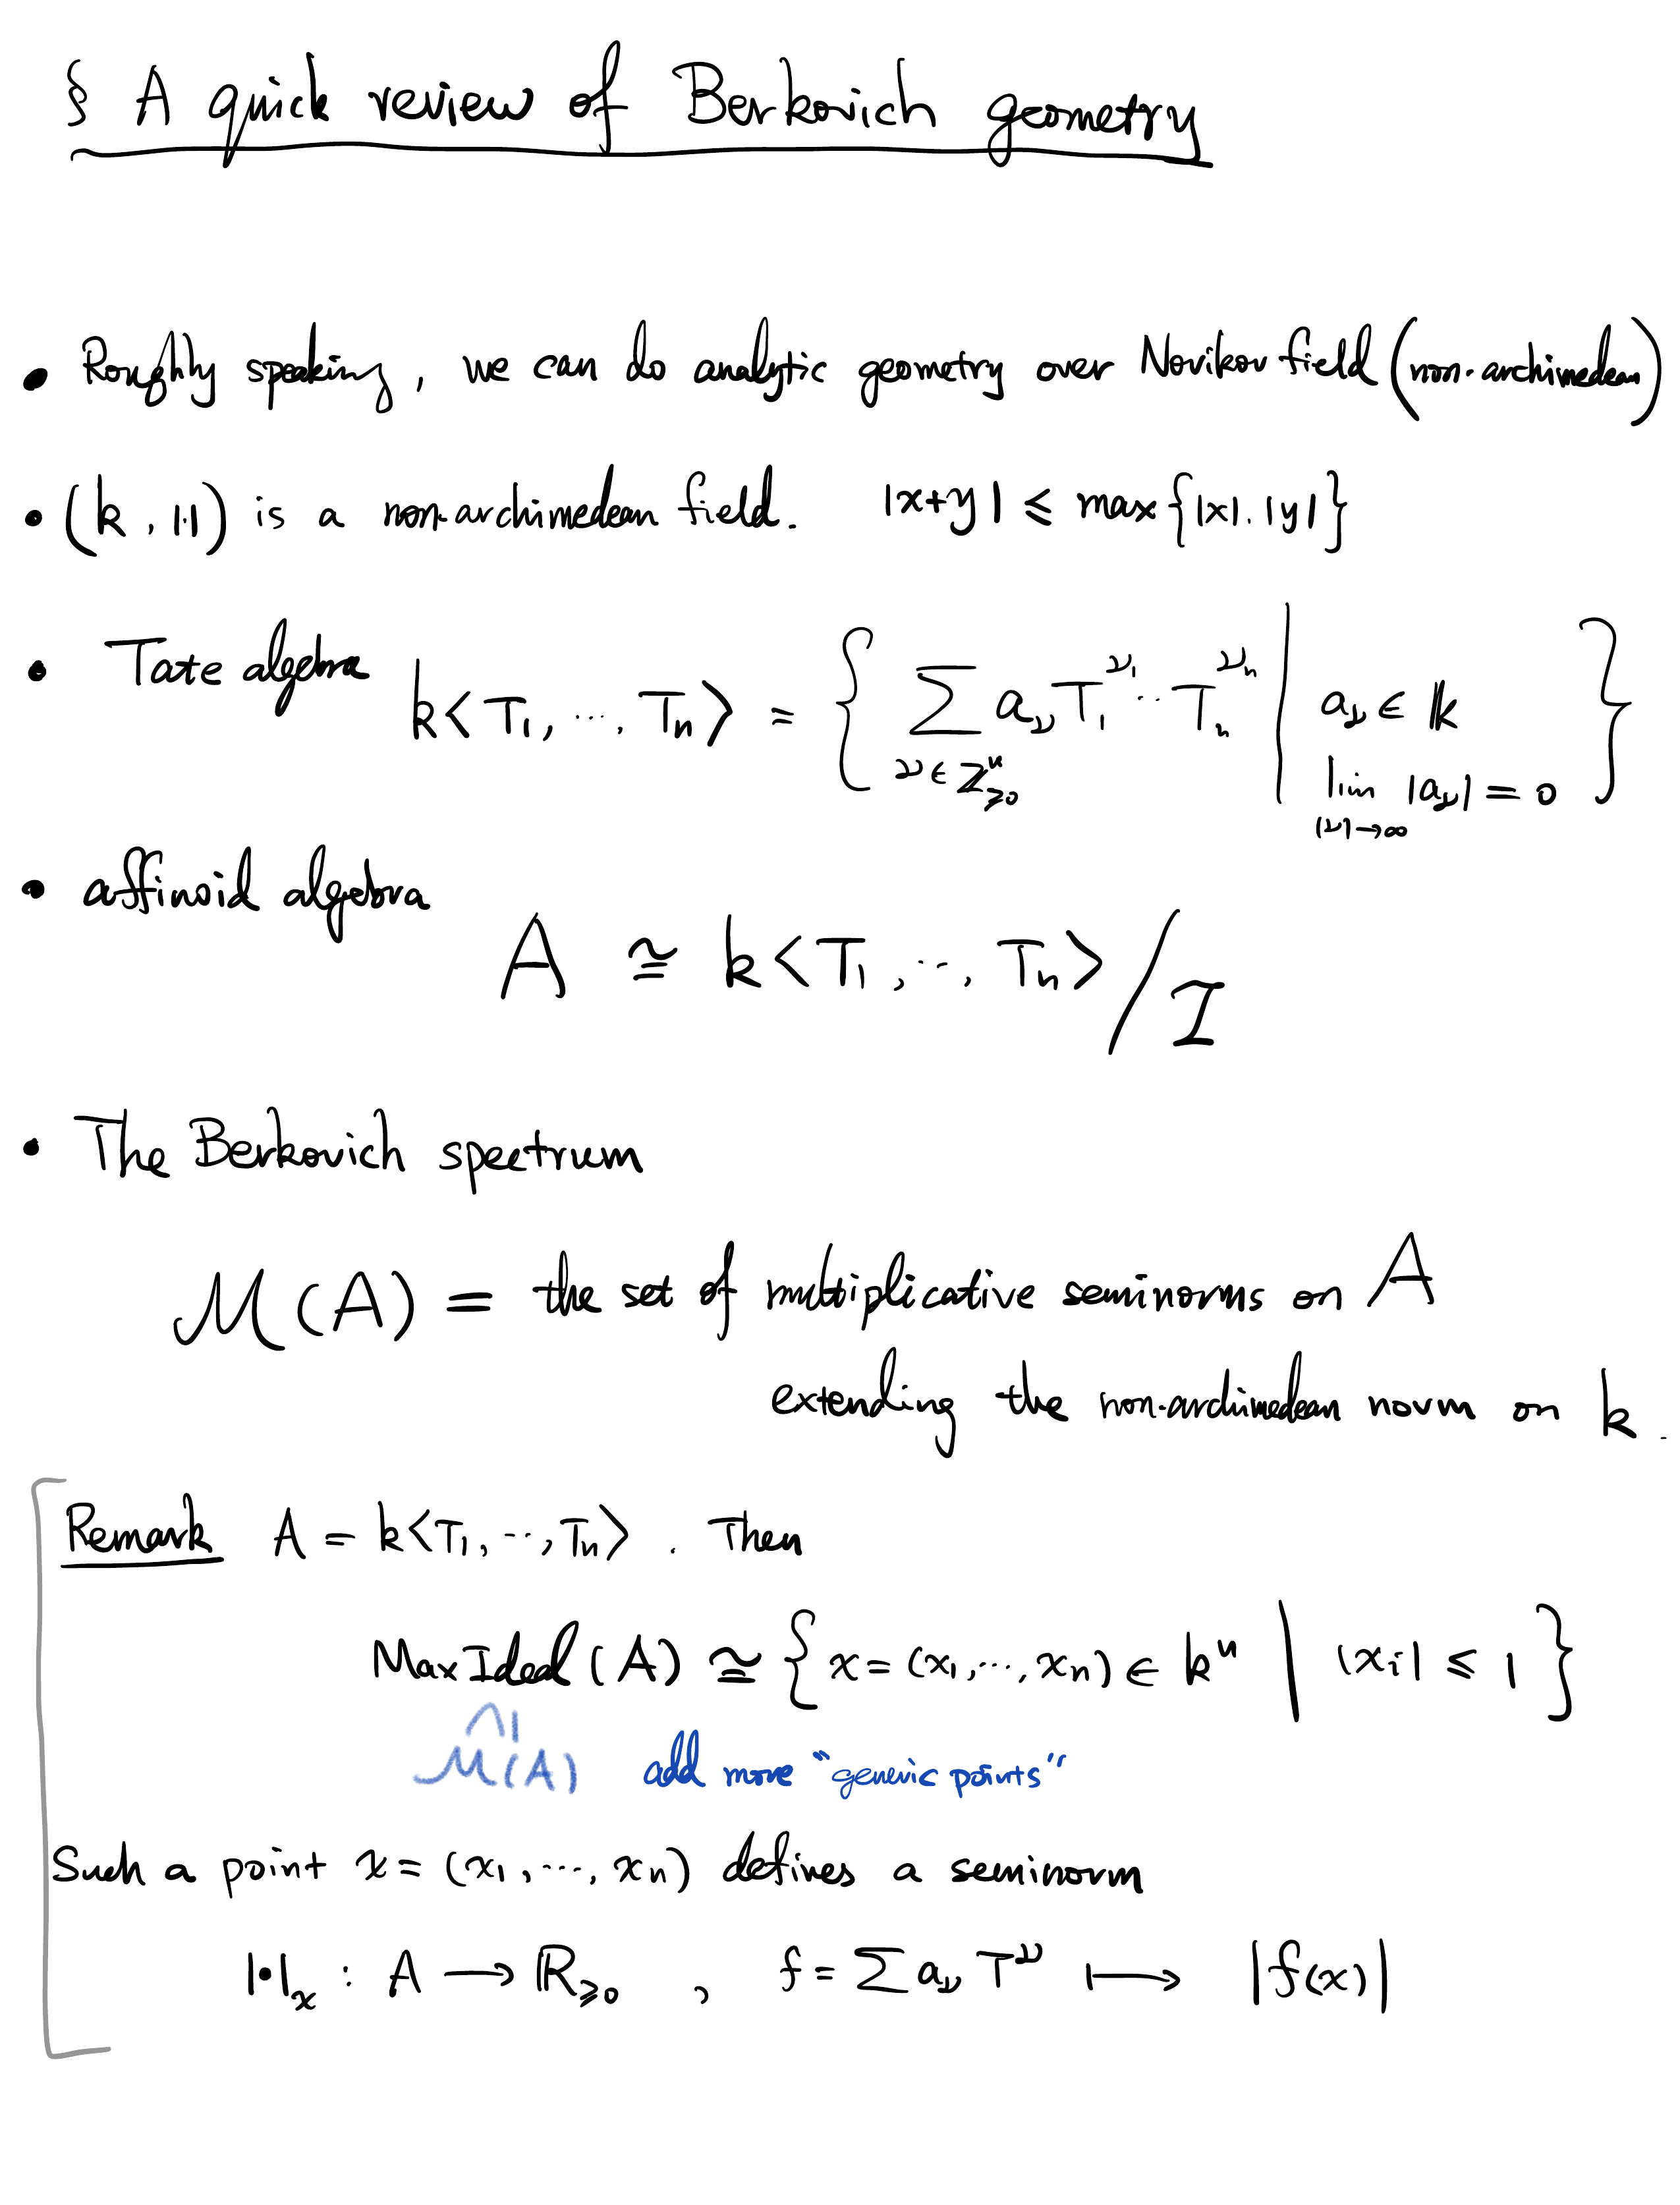 § A quick review of Berkovich geometry
• Roughly speaking, we can do analytic geometry over Novikov field (non-archimedean)
• (k, |·|) is a non-archimedean field. |x+y| ≤ max{|x|, |y|}
• Tate algebra k<T₁, ⋯, Tₙ> = { ∑_{ν∈ℤⁿ_{≥0}} a_ν T₁^{ν₁} ⋯ Tₙ^{νₙ} | a_ν ∈ 𝕜, lim_{|ν|→∞} |a_ν| = 0 }
• affinoid algebra
A ≅ k<T₁, ⋯, Tₙ>/I
• The Berkovich spectrum
ℳ(A) = the set of multiplicative seminorms on A
extending the non-archimedean norm on k.
Remark A = k<T₁, ⋯, Tₙ>. Then
Max Ideal (A) ≅ { x = (x₁, ⋯, xₙ) ∈ kⁿ | |xᵢ| ≤ 1 }
∩|
ℳ(A) add more "generic points"
Such a point x = (x₁, ⋯, xₙ) defines a seminorm
|•|ₓ : A → ℝ_{≥0} , f = ∑ a_ν T^ν ↦ |f(x)|